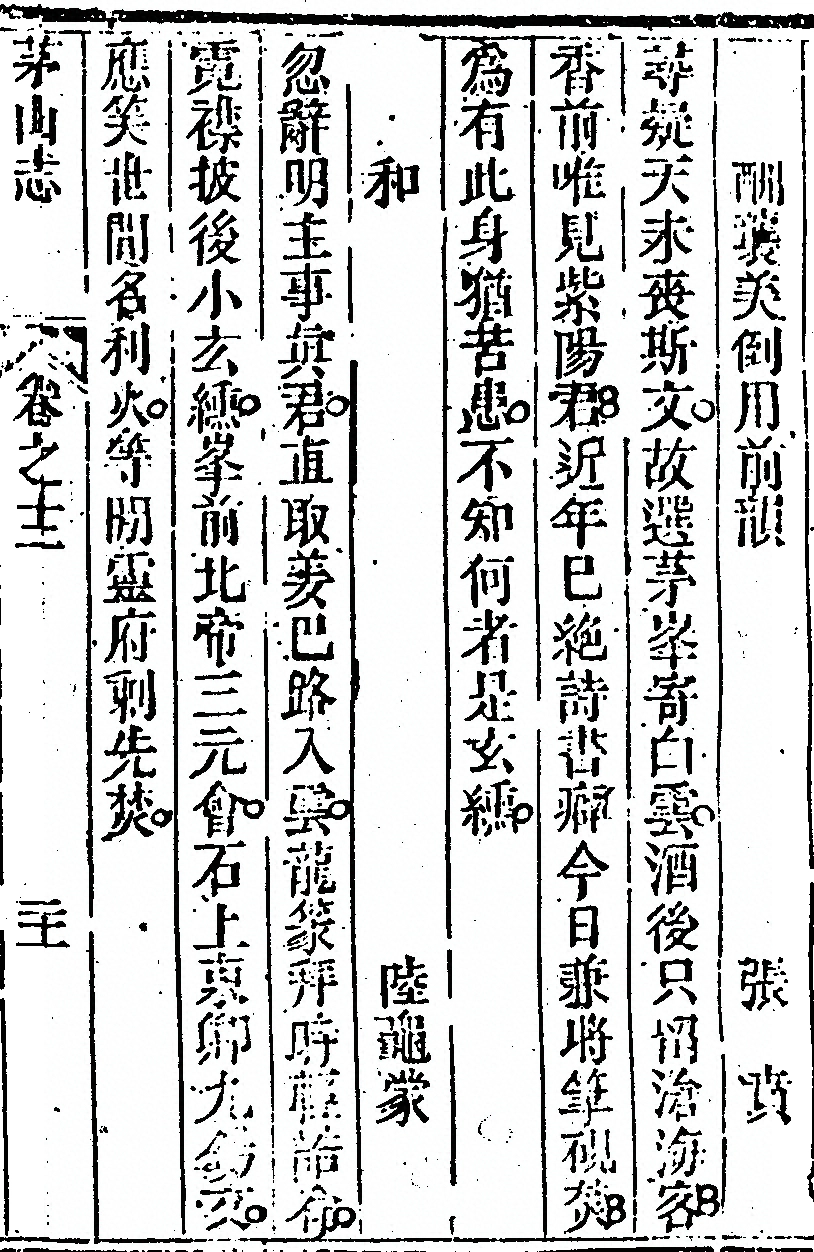 酬襲美倒用前韻 張賁
尋疑天未喪斯文故選茅峯寄白雲酒後只留滄海客
香前唯見紫陽君近年已絕詩書癖今日兼將筆硯焚
爲有此身猶苦患不知何者是玄纁
和 陸龜蒙
忽辭明主事真君直取姜巴路入雲龍篆拜時輕誥命
霓襟披後小玄纁峯前北帝三元會石上東卿九錫文
應笑世間名利火等閒靈府剩先焚
茅山志 卷之十三 二十